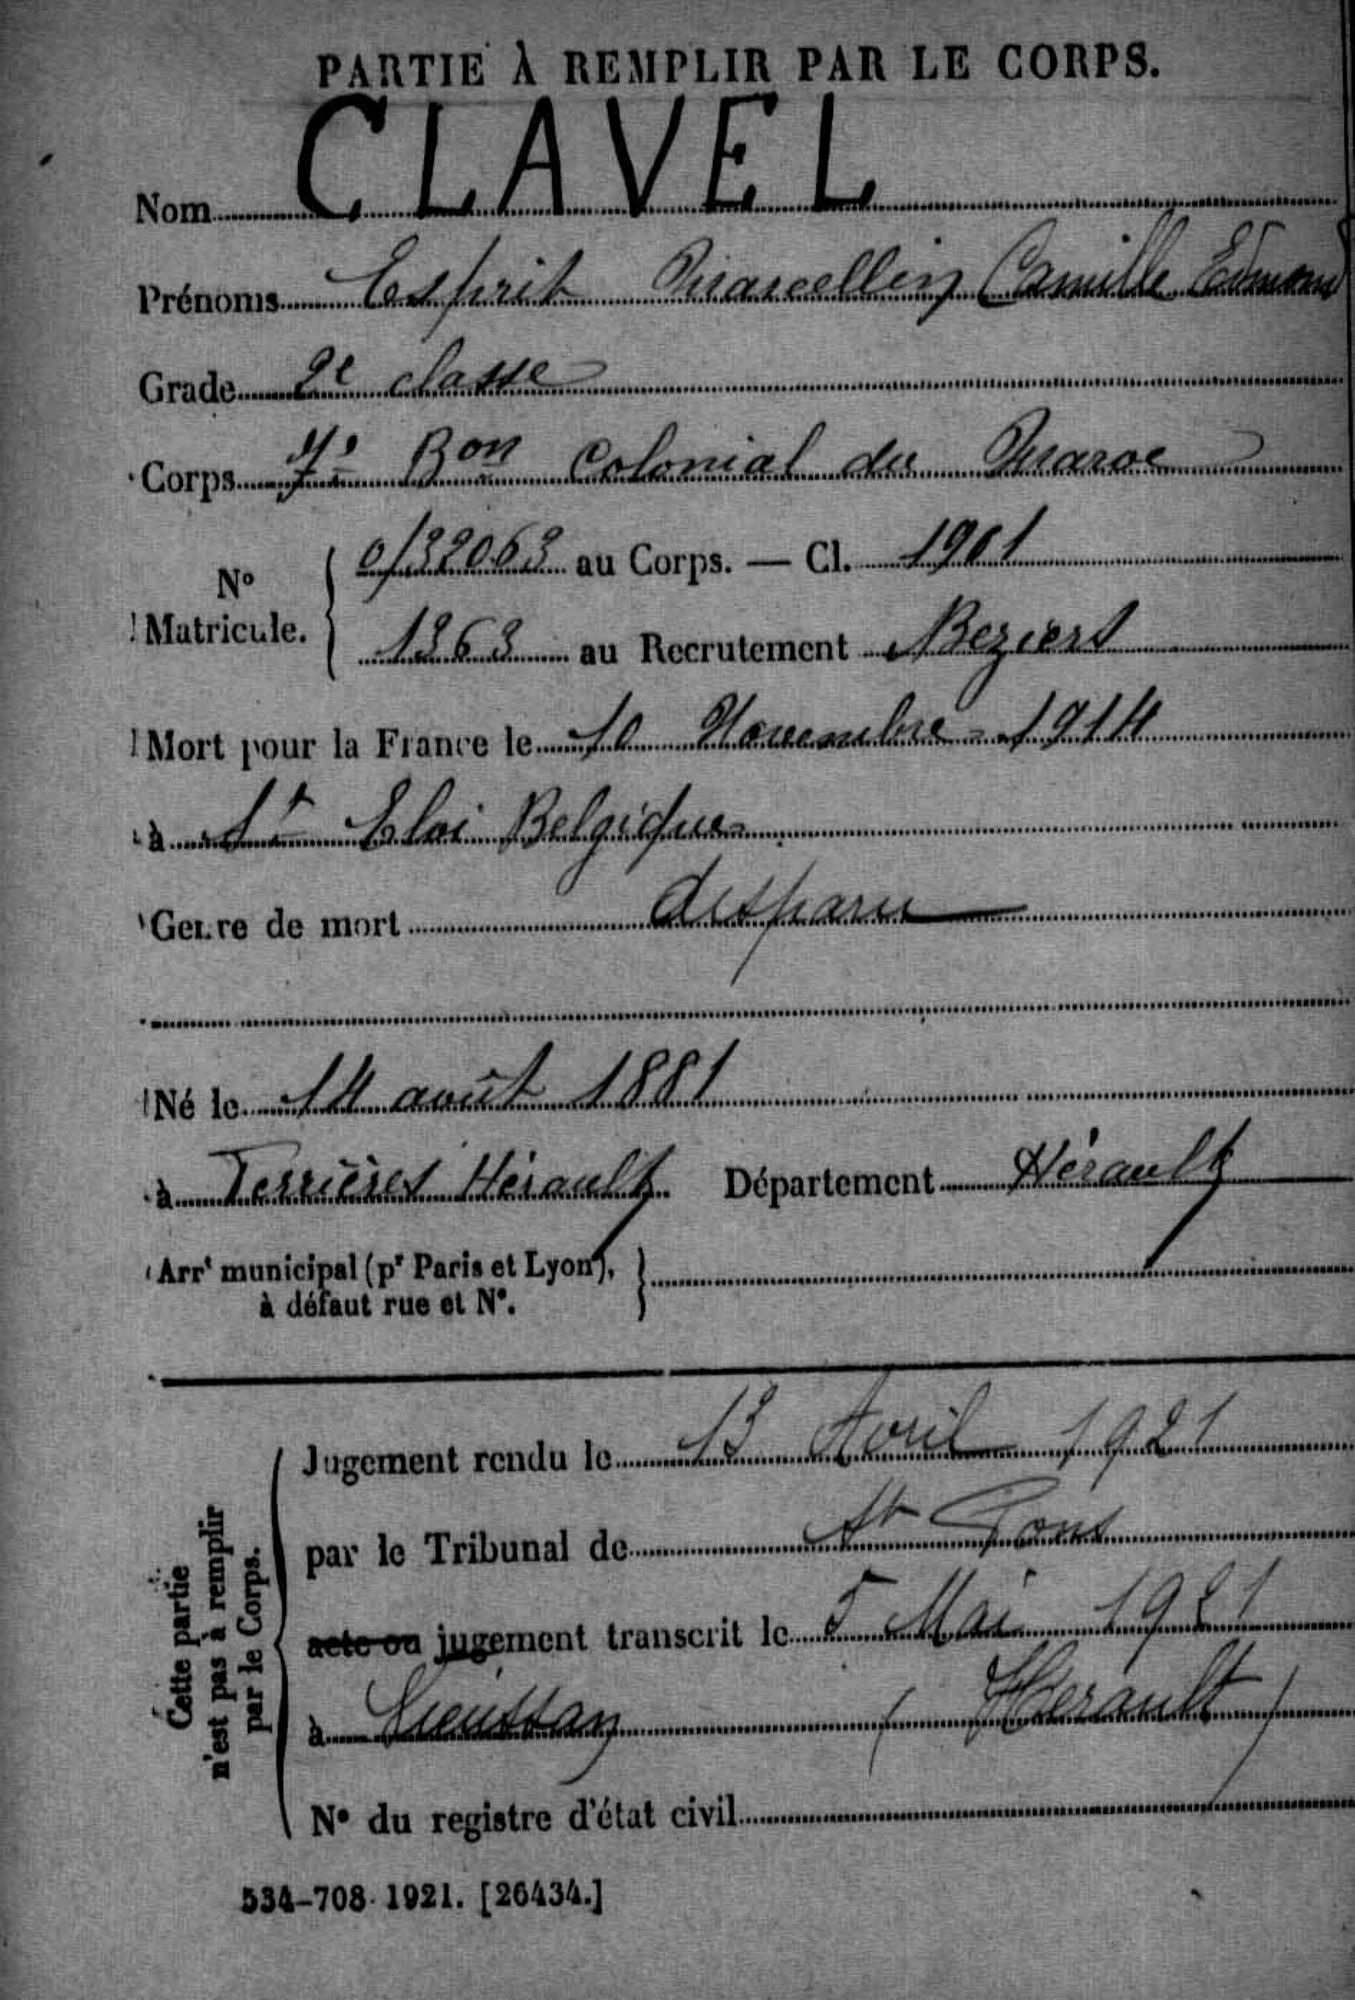 PARTIE À REMPLIR PAR LE CORPS.
Nom CLAVEL
Prénoms Esprit Marcellin Camille Edmond
Grade 2e classe
Corps 7e Bon Colonial du Maroc
No Matricule. 0/32063 au Corps. — Cl. 1901
1363 au Recrutement Beziers
Mort pour la France le 10 Novembre 1914
à St Eloi Belgique
Genre de mort disparu
Né le 14 août 1881
à Ferrières Hérault Département Hérault
Arrt municipal (pr Paris et Lyon),
à défaut rue et No.
Cette partie
n'est pas à remplir
par le Corps.
Jugement rendu le 13 Avril 1921
par le Tribunal de St Pons
acte ou jugement transcrit le 5 Mai 1921
à Vieussan (Herault)
No du registre d'état civil
534-708. 1921. [26434.]